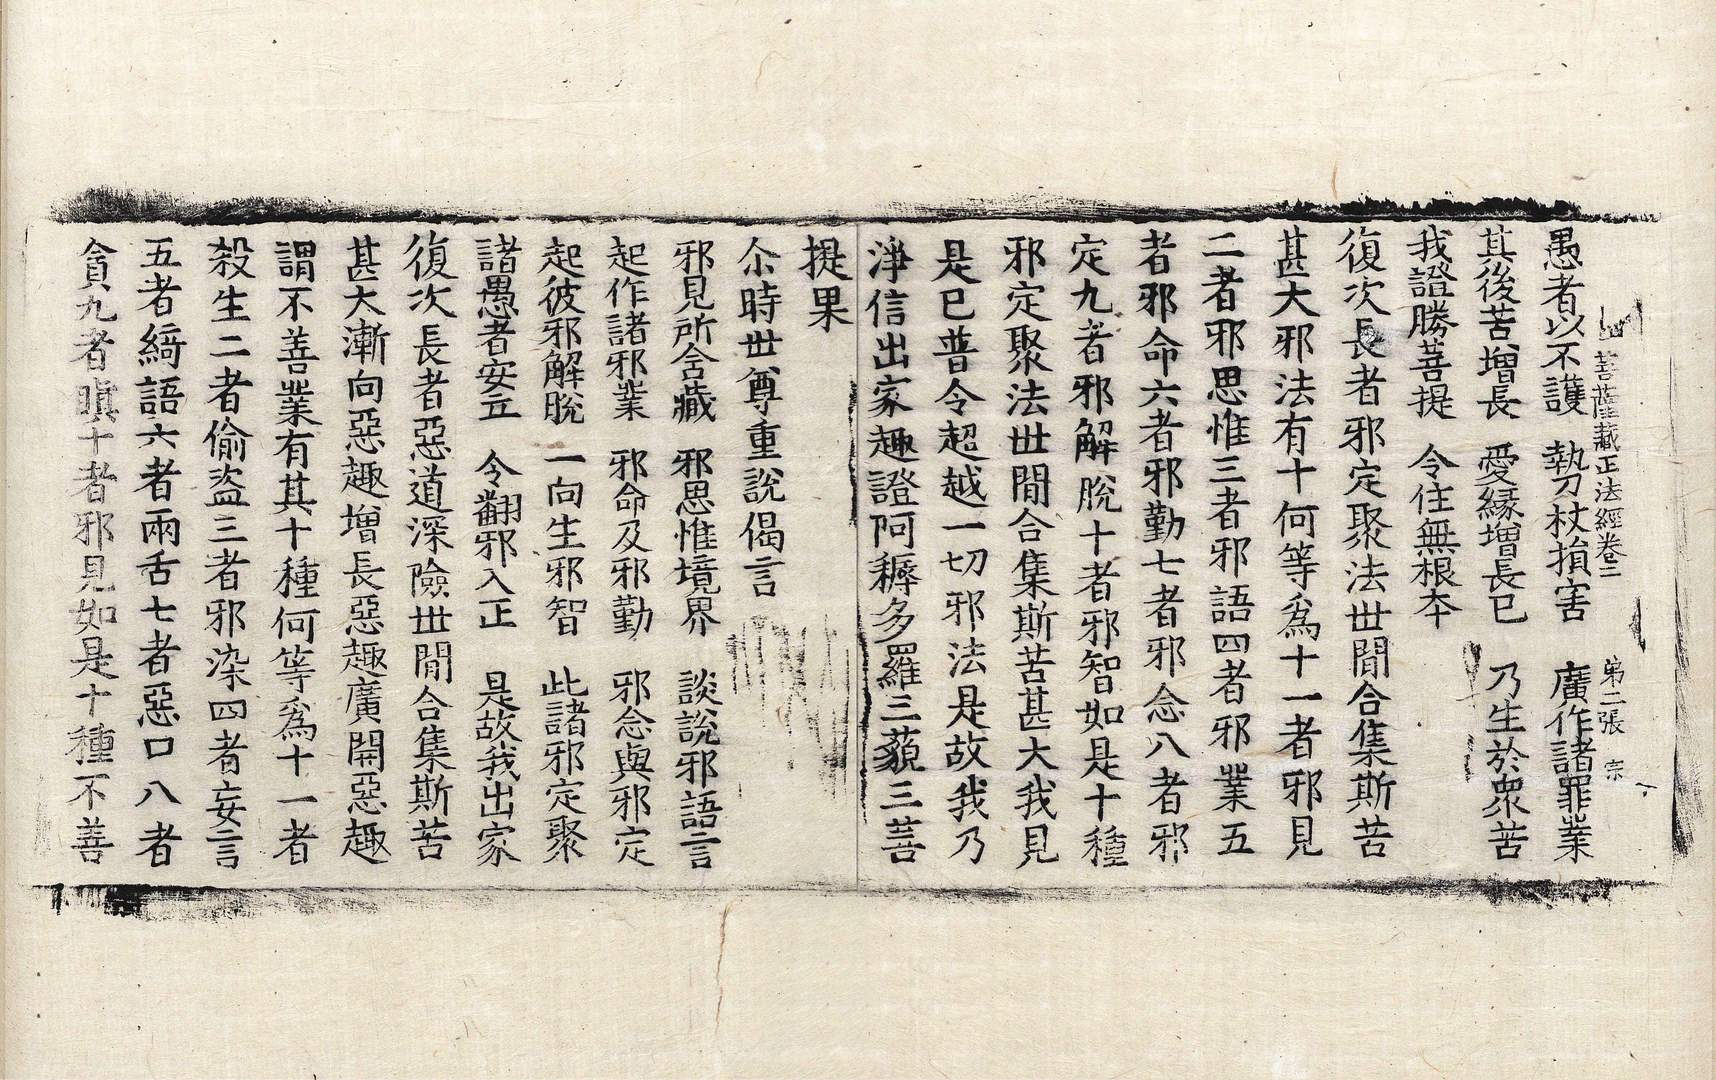 菩薩藏正法經卷三 第二張 宗
愚者以不護 執刀杖損害 廣作諸罪業
其後苦增長 愛緣增長已 乃生於衆苦
我證勝菩提 令住無根本
復次長者邪定聚法世間合集斯苦
甚大邪法有十何等爲十一者邪見
二者邪思惟三者邪語四者邪業五
者邪命六者邪勤七者邪念八者邪
定九者邪解脫十者邪智如是十種
邪定聚法世間合集斯苦甚大我見
是已普令超越一切邪法是故我乃
淨信出家趣證阿耨多羅三藐三菩
提果
尒時世尊重說偈言
邪見所含藏 邪思惟境界 談說邪語言
起作諸邪業 邪命及邪勤 邪念與邪定
起彼邪解脫 一向生邪智 此諸邪定聚
諸愚者安立 令翻邪入正 是故我出家
復次長者惡道深險世間合集斯苦
甚大漸向惡趣增長惡趣廣開惡趣
謂不善業有其十種何等爲十一者
殺生二者偷盜三者邪染四者妄言
五者綺語六者兩舌七者惡口八者
貪九者瞋十者邪見如是十種不善